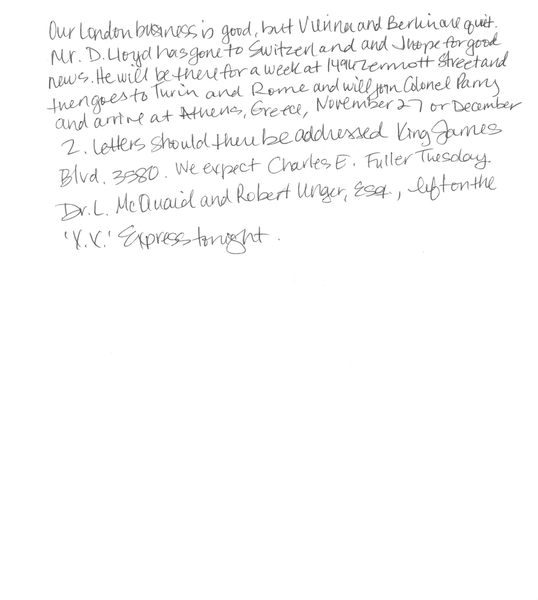 Our London business is good, but Vienna and Berlin are quiet.
Mr. D. Lloyd has gone to Switzerland and I hope for good
news. He will be there for a week at 1496 Zermott Street and
then goes to Turin and Rome and will join Colonel Parry
and arrive at Athens, Greece, November 27 or December
2. Letters should then be addressed King James
Blvd. 3580. We expect Charles E. Fuller Tuesday.
Dr. L. McQuaid and Robert Unger, Esq., left on the
'X.X.' Express tonight.